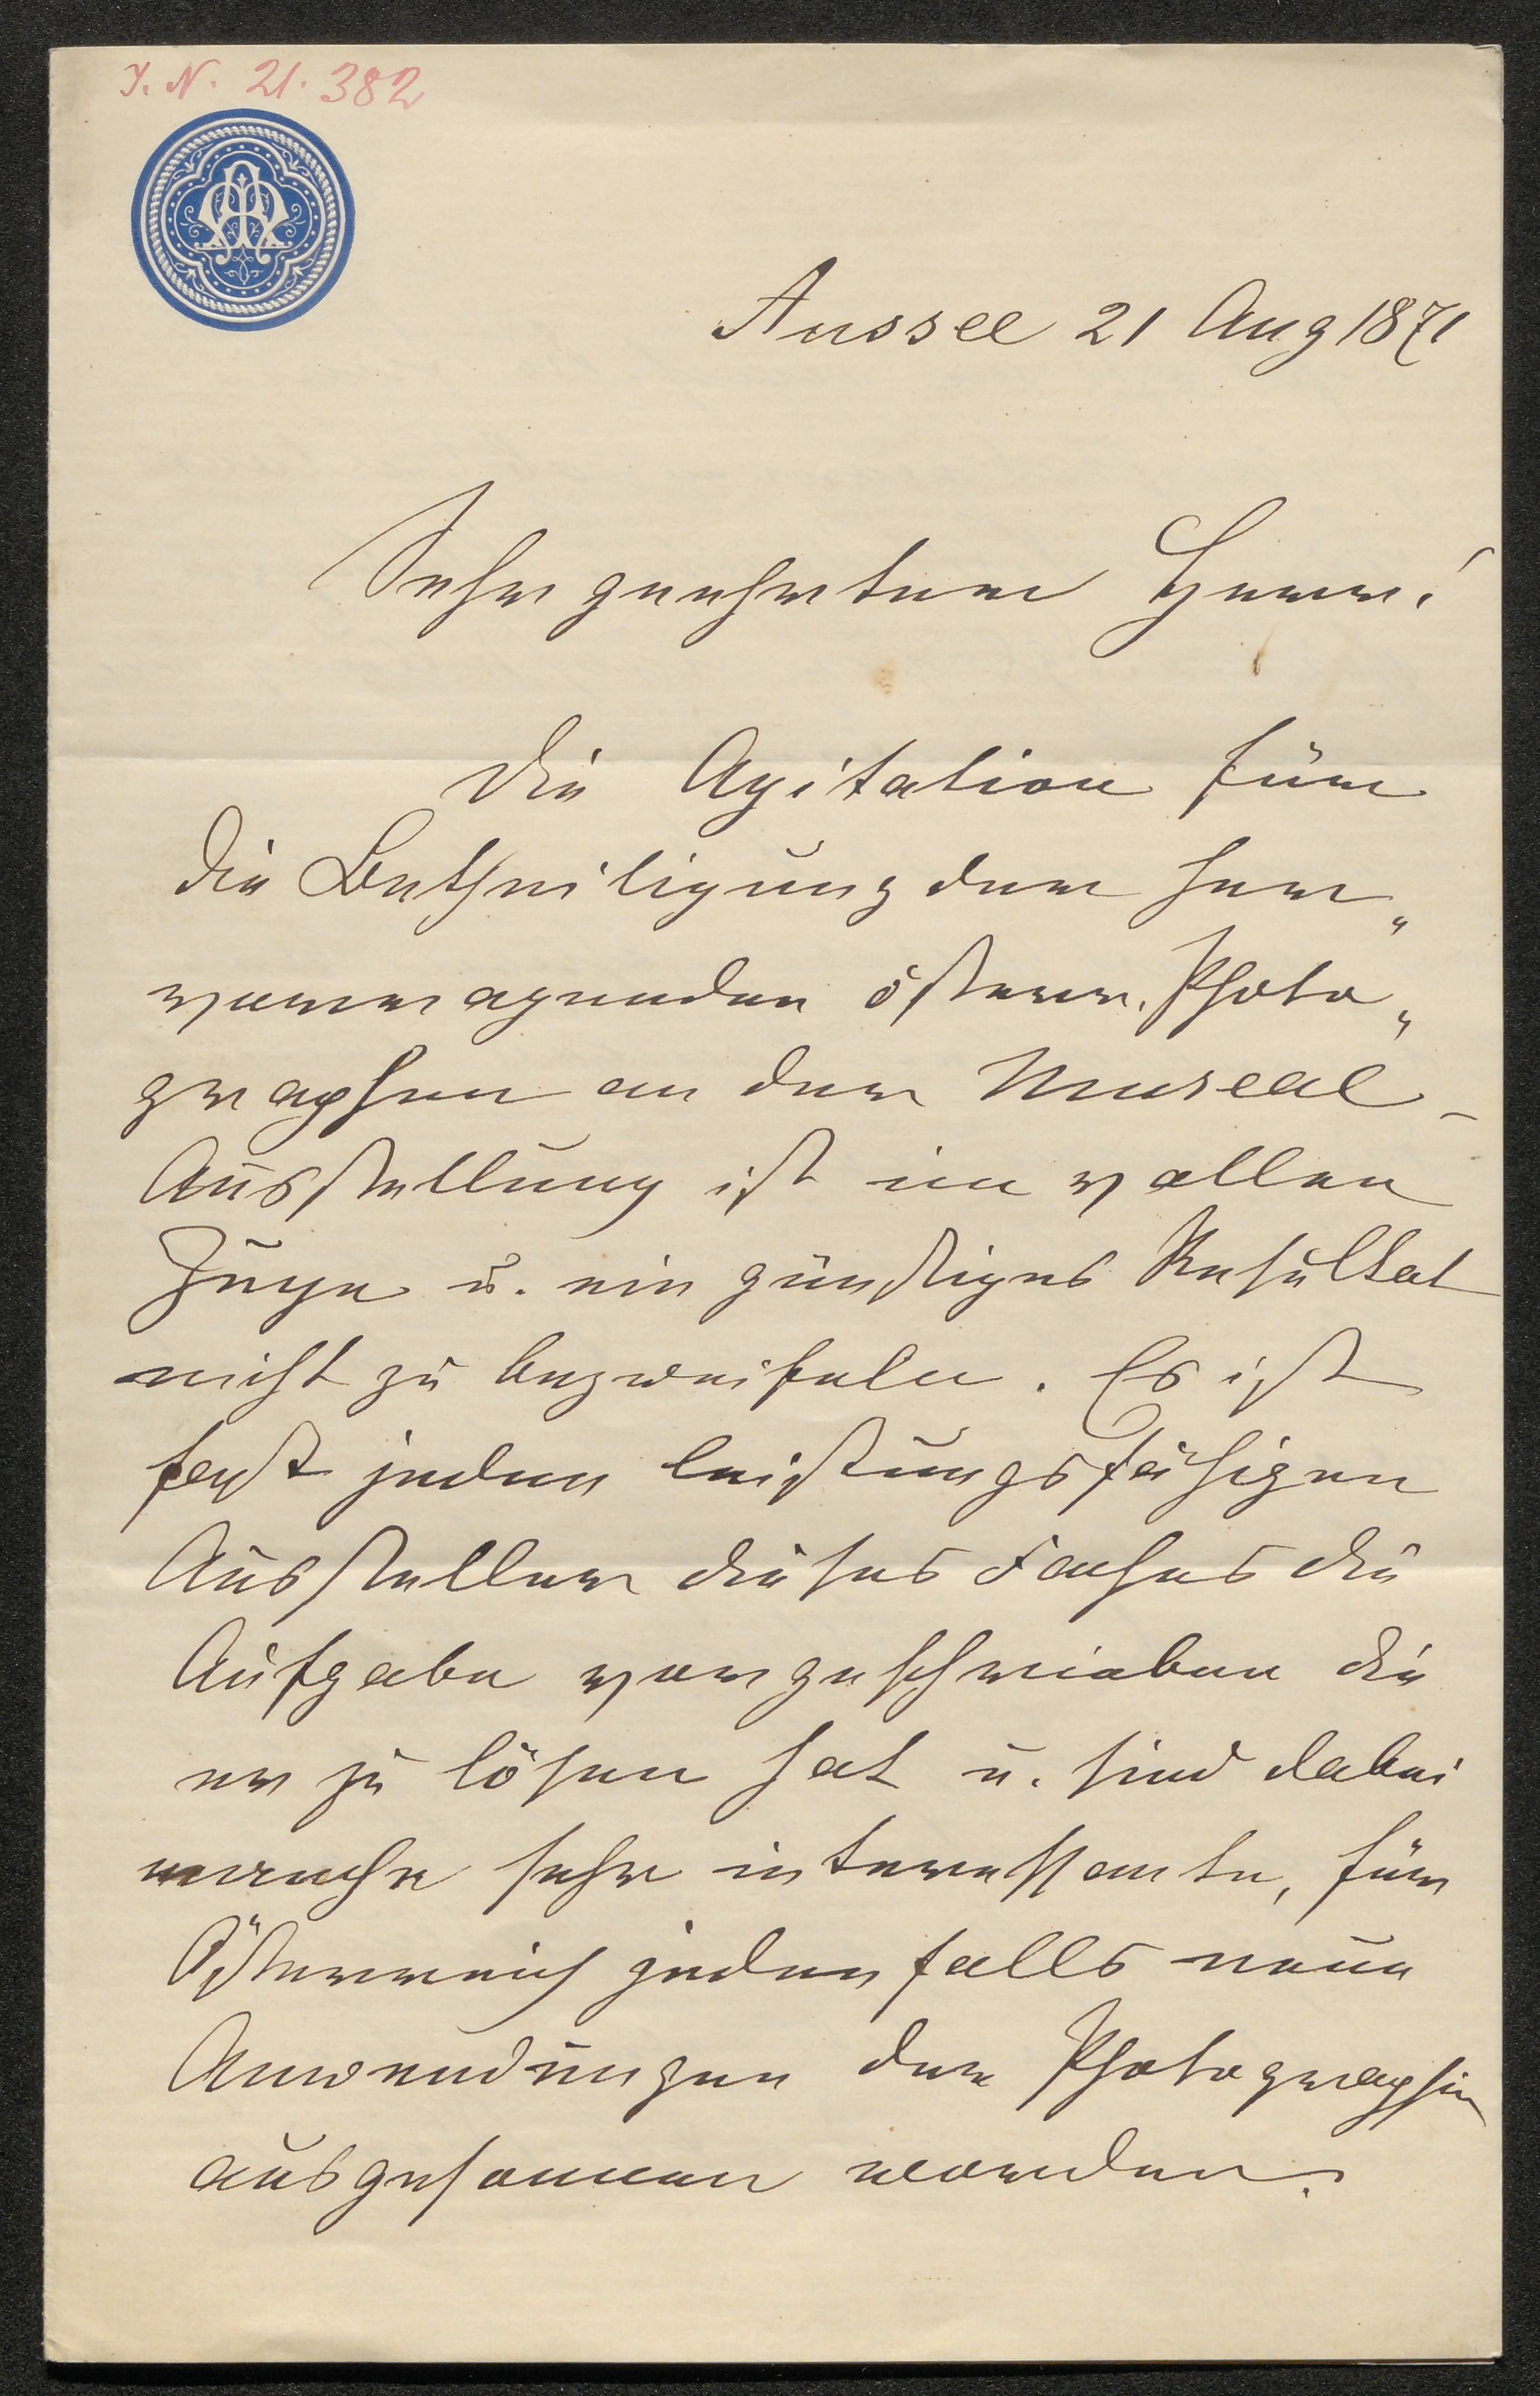 I. N. 21.382
Aussee 21 Aug 1871
Sehr geehrter Herr!
Die Agitation für
die Betheiligung der her„
vorragenden österr. Photo„
graphen an der Museal-
Ausstellung ist im vollen
Zuge u. ein günstiges Resultat
nicht zu bezweifeln. Es ist
fast jedem leistungsfähigen
Aussteller dieses Faches die
Aufgabe vorgeschrieben die
er zu lösen hat u. sind dabei
manche sehr interessante, für
Österreich jedenfalls neue
Anwendungen der Photographie
ausgesonnen worden.